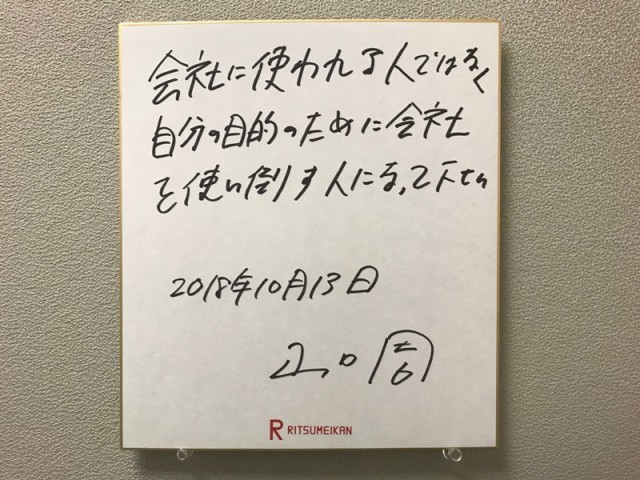 会社に使われる人ではなく
自分の目的のために会社
を使い倒す人になって下さい
2018年10月13日
山口周
R RITSUMEIKAN